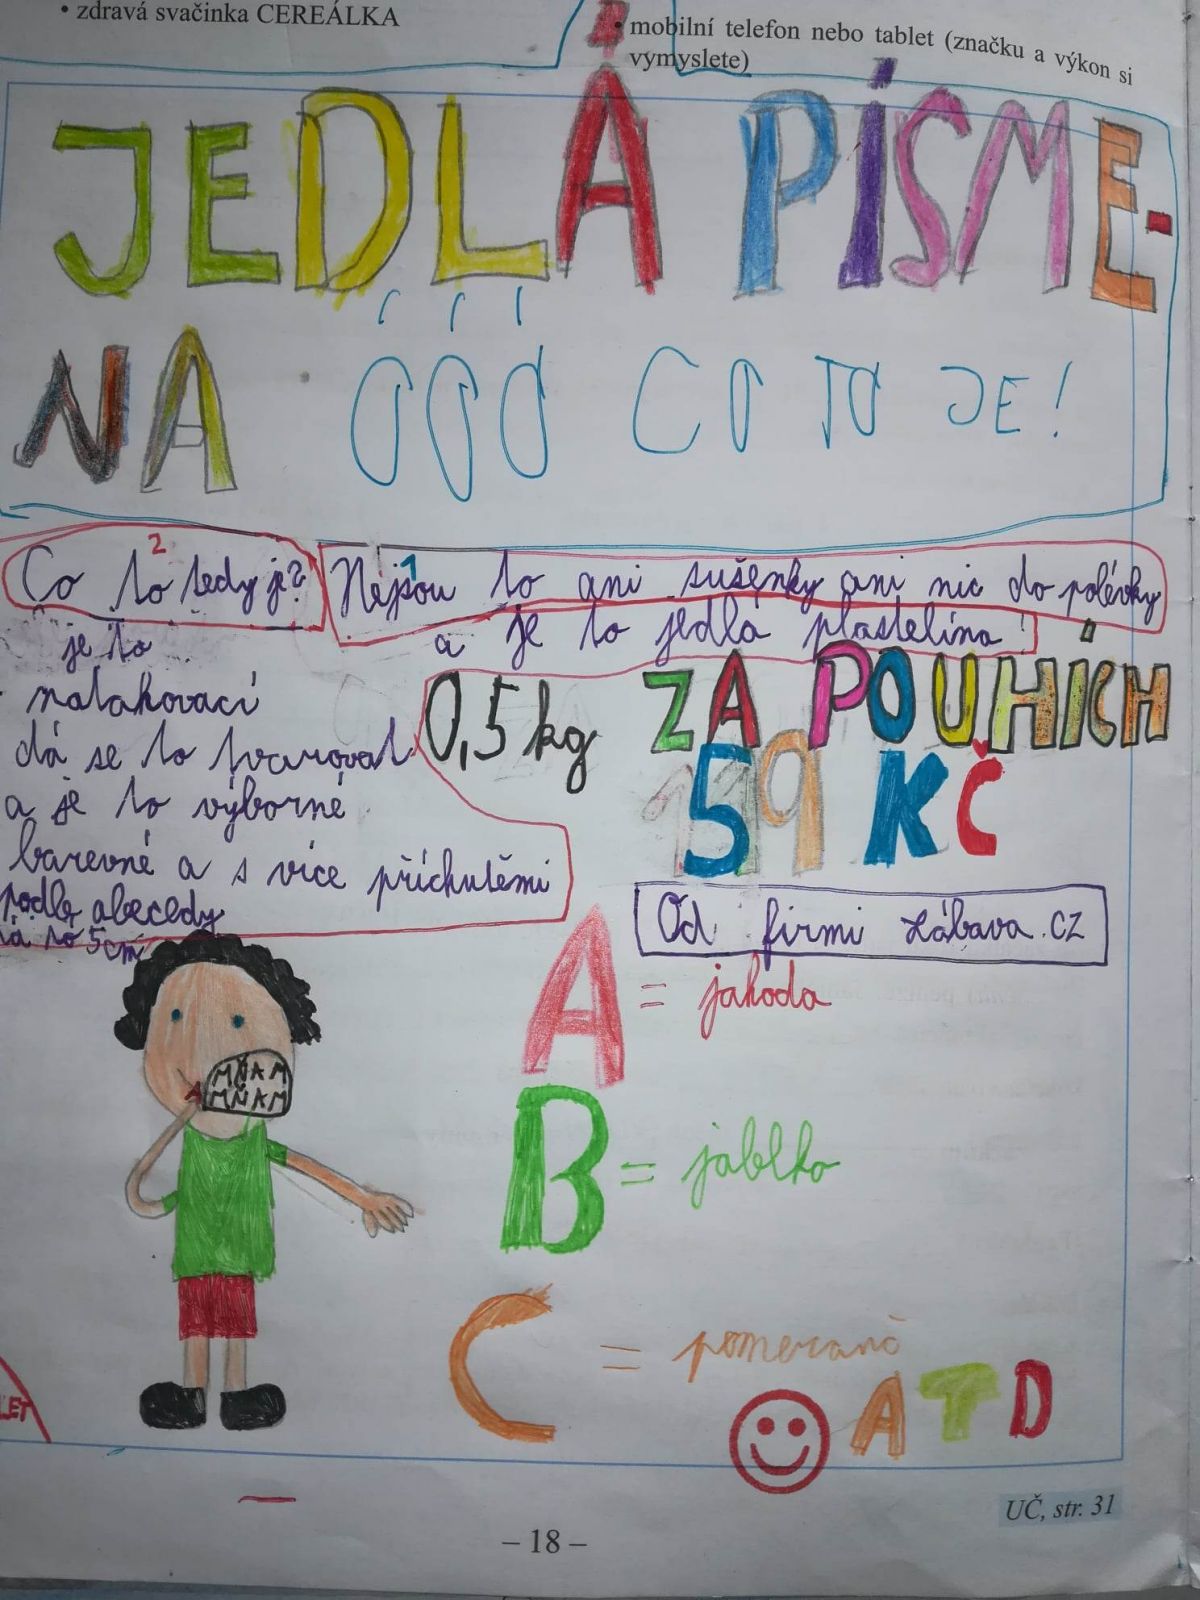 • zdravá svačinka CEREÁLKA
• mobilní telefon nebo tablet (značku a výkon si
vymyslete)
JEDLÁ PÍSME-
NA ÓÓÓ CO TO JE!
Co to tedy je? 2
Nejsou to ani sušenky ani nic do polévky 1
a je to jedlá plastelína!
je to
natahovací
dá se to tvarovat
a je to výborné
barevné a s více příchutěmi
podle abecedy
má to 5cm
0,5 kg
ZA POUHÍCH
59 KČ
Od firmi zábava.cz
A = jahoda
B = jablko
C = pomeranč
ATD
A
MŇAM
MŇAM
LET
UČ, str. 31
– 18 –